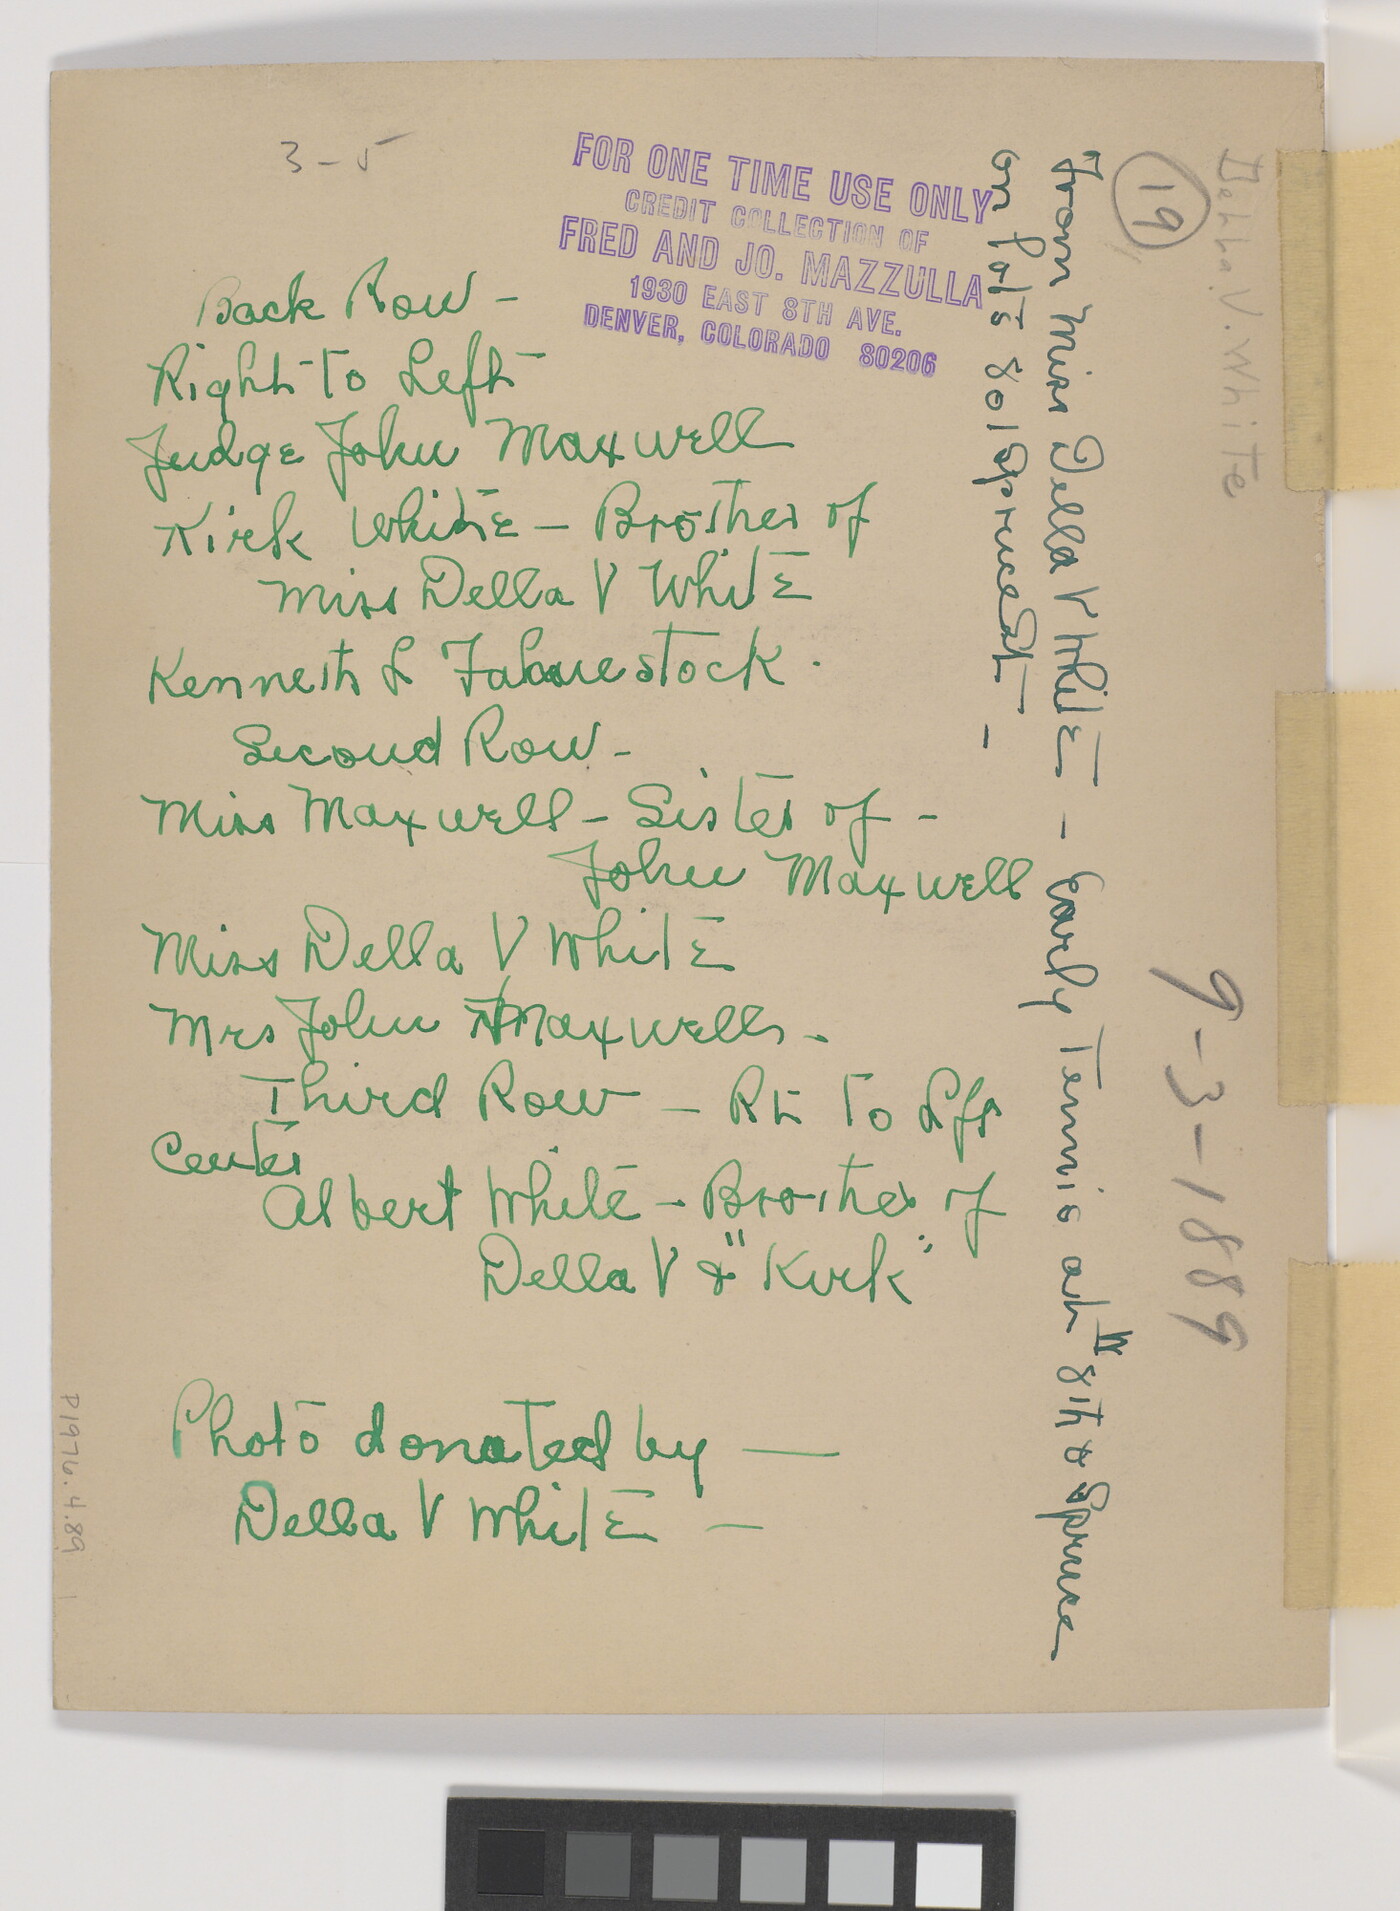 3-5
FOR ONE TIME USE ONLY
CREDIT COLLECTION OF
FRED AND JO. MAZZULLA
1930 EAST 8TH AVE.
DENVER, COLORADO 80206
Back Row -
Right to Left -
Judge John Maxwell
Kirk White - Brother of
Miss Della V White
Kenneth L Fahnestock.
Second Row -
Miss Maxwell - Sister of -
John Maxwell
Miss Della V White
Mrs John Maxwell -
Third Row - Rt to Lft
Center
Albert White - Brother of
Della V & "Kirk"
Photo donated by —
Della V White —
Della V. White
19
9-3-1889
From Miss Della V White - Early Tennis at W 8th & Spruce
on lots 801 Spruce St -
P1976.4.89